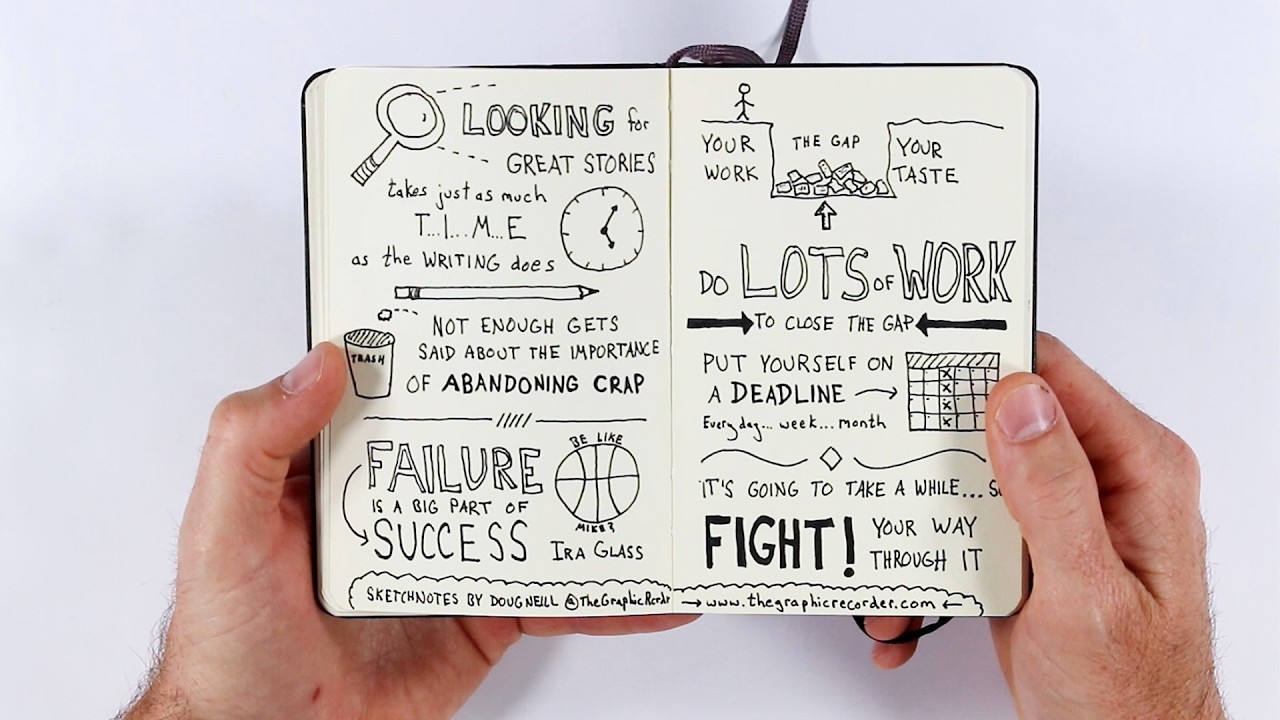 LOOKING for
GREAT STORIES
takes just as much
T...I...M...E
as the WRITING does
NOT ENOUGH GETS
SAID ABOUT THE IMPORTANCE
TRASH
OF ABANDONING CRAP
BE LIKE
FAILURE
IS A BIG PART OF
MIKE?
SUCCESS
IRA GLASS
SKETCHNOTES BY DOUG NEILL @TheGraphicRcrdr
YOUR
WORK
THE GAP
YOUR
TASTE
DO LOTS OF WORK
TO CLOSE THE GAP
PUT YOURSELF ON
A DEADLINE
Every day... week... month
IT'S GOING TO TAKE A WHILE...
FIGHT! YOUR WAY
THROUGH IT
www.thegraphicrecorder.com